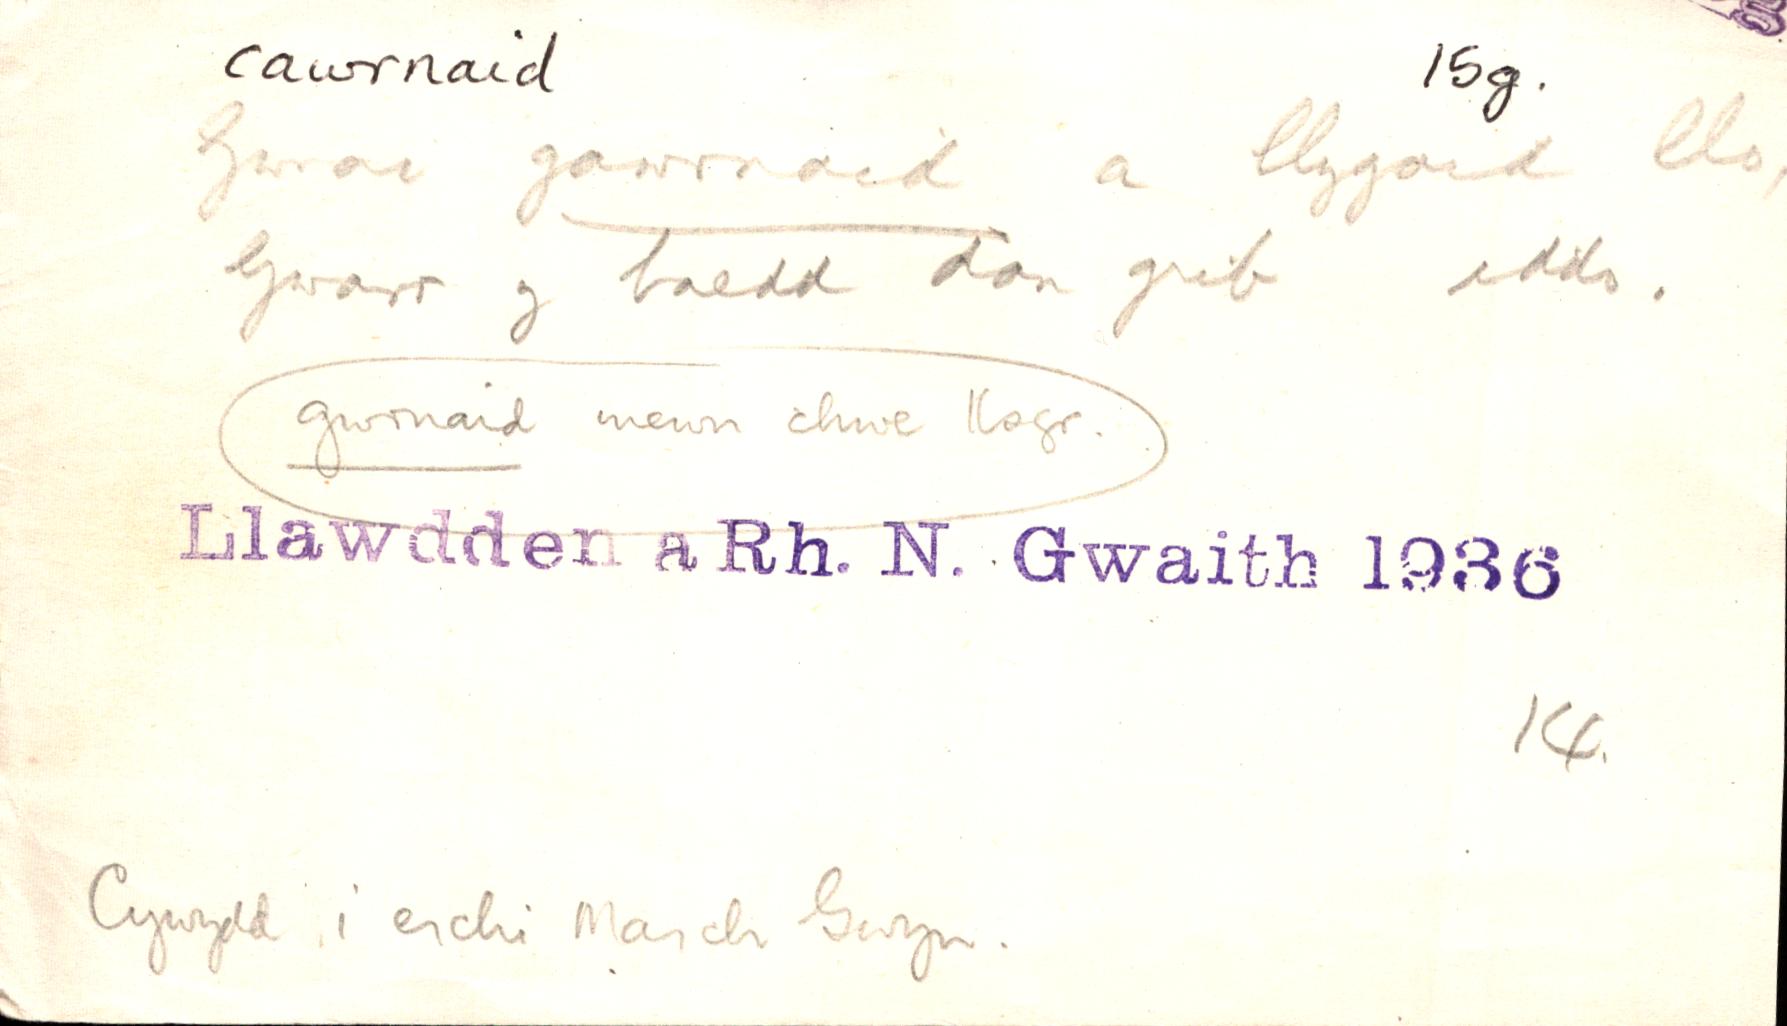 cawrnaid 15g.
Gwrai gawrnaid a llygaid llo,
Gwarr y baedd dan grib iddo.
gwrnaid mewn chwe llsgr.
Llawdden a Rh. N. Gwaith 1936
14.
Cywydd i erchi March Gwyn.